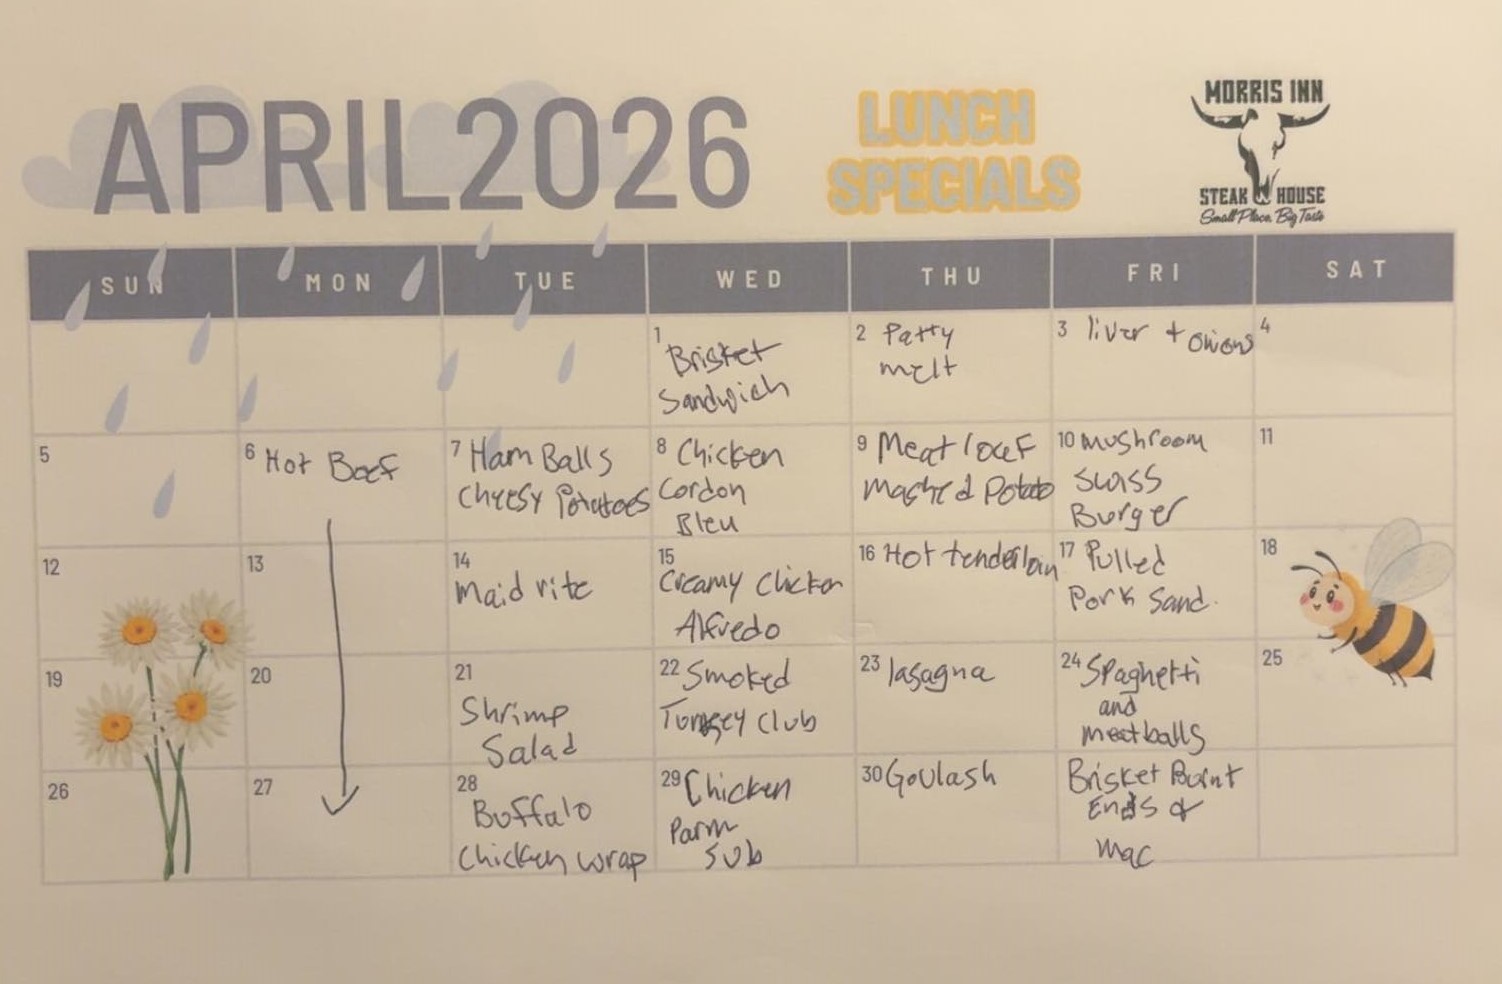 APRIL 2026
LUNCH
SPECIALS
MORRIS INN
STEAK HOUSE
Small Place, Big Taste
SUN MON TUE WED THU FRI SAT
1 Brisket
Sandwich
2 Patty
melt
3 liver + onions
4
5
6 Hot Beef
7 Ham Balls
Cheesy Potatoes
8 Chicken
Cordon
Bleu
9 Meat loaf
Mashed Potato
10 mushroom
swiss
Burger
11
12
13
14
Maid rite
15
Creamy Chicken
Alfredo
16 Hot tenderloin
17 Pulled
Pork Sand.
18
19
20
21
Shrimp
Salad
22 Smoked
Turkey Club
23 lasagna
24 Spaghetti
and
meatballs
25
26
27
28
Buffalo
Chicken wrap
29 Chicken
Parm
Sub
30 Goulash
Brisket Burnt
Ends &
mac